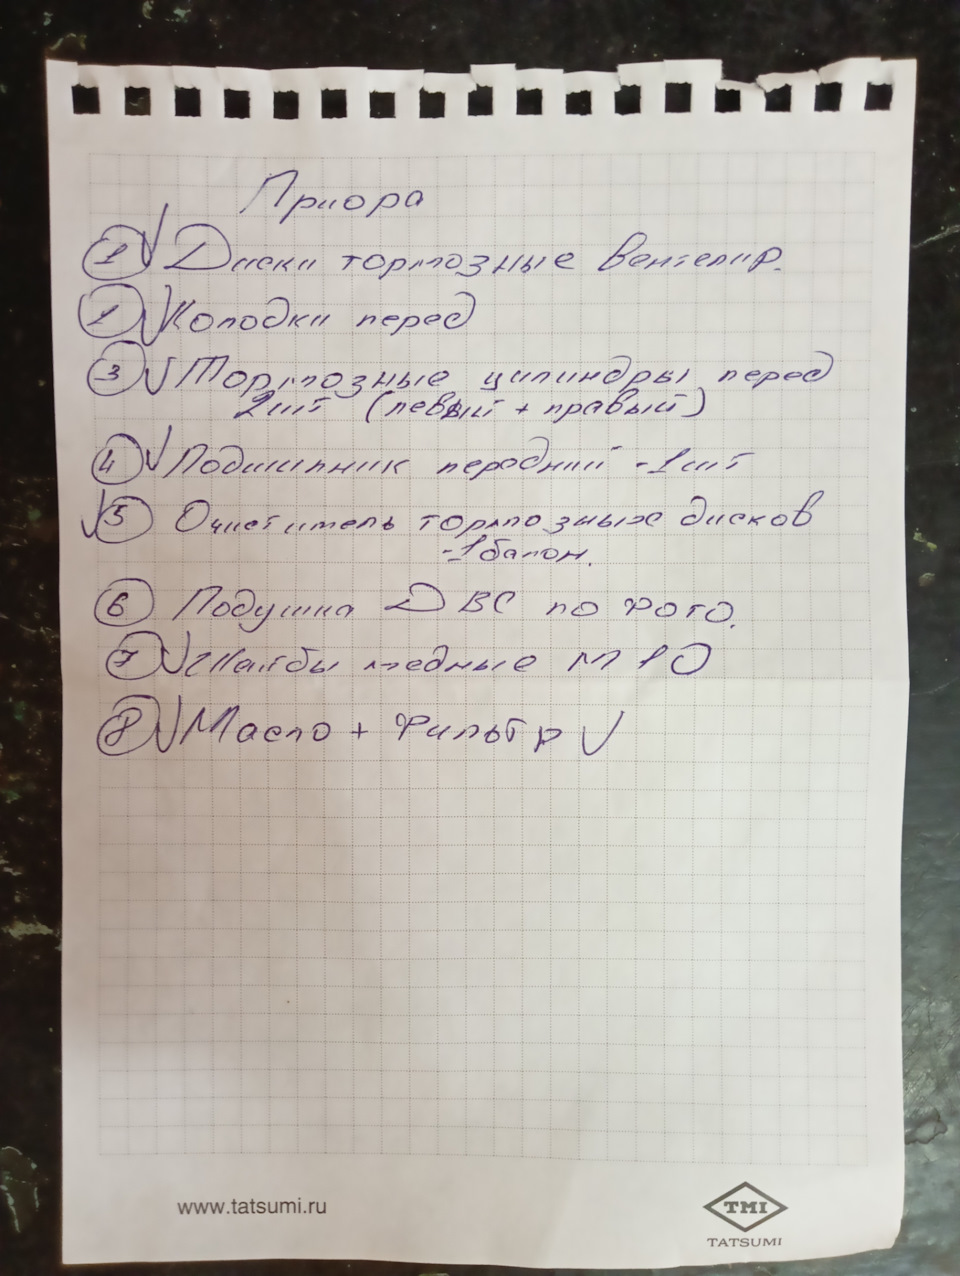 Приора
1 √ Диски тормозные вентилир.
1 √ Колодки перед
3 √ Тормозные цилиндры перед
2шт (левый + правый)
4 √ Подшипник передний -1шт
√ 5 Очиститель тормозных дисков
-1балон.
6 Подушка ДВС по фото.
7 √ Шайбы медные М10
8 √ Масло + Фильтр √
www.tatsumi.ru
TMI
TATSUMI